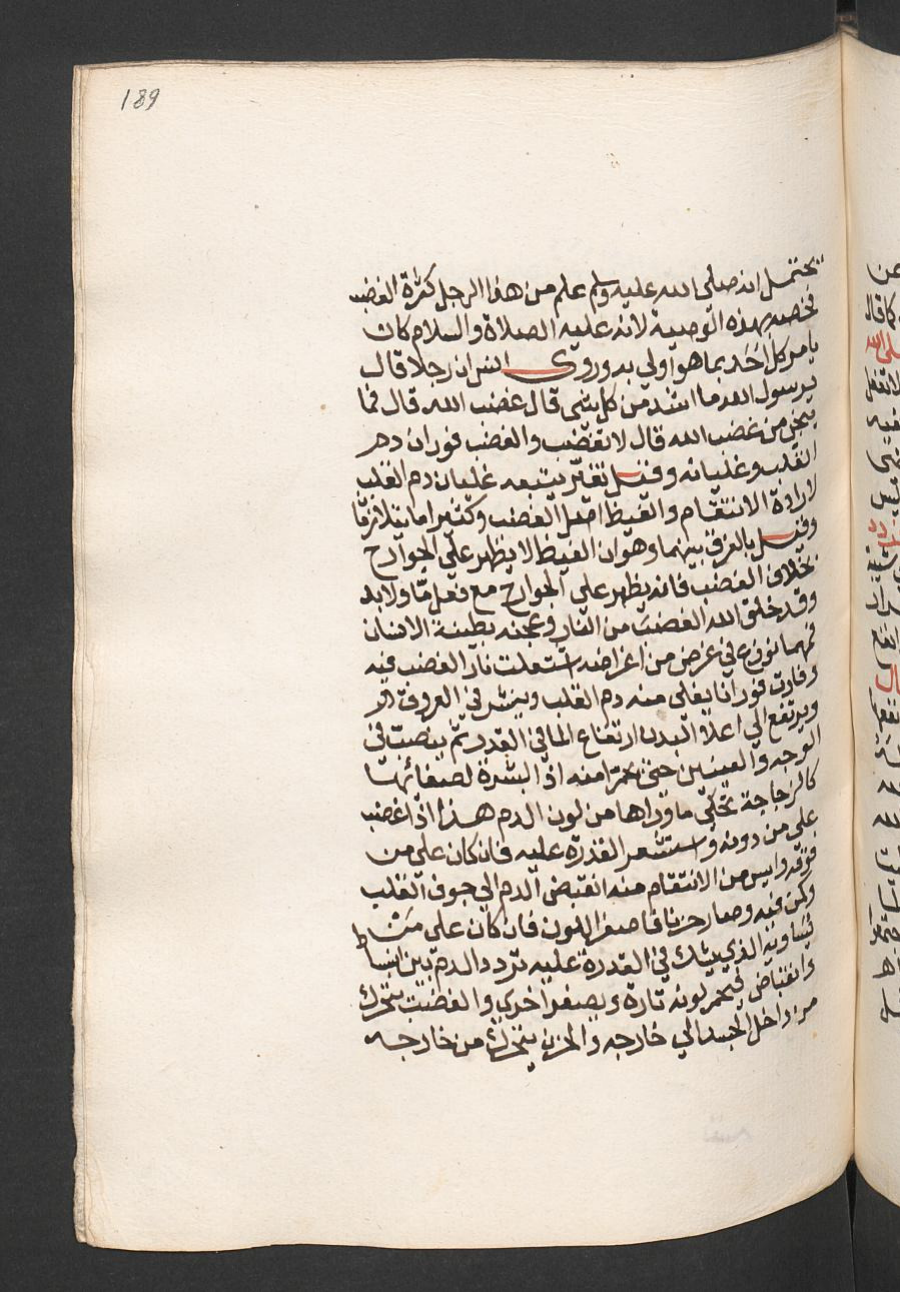 189
يحتمل انه صلى الله عليه وسلم علم من هذا الرجل كثرة الغضب
فخصه بهذه الوصية لانه عليه الصلاة والسلام كان
يامر كل احد بما هو اولى به وروى انس ان رجلا قال
يرسول الله ما اشد من كل شى قال غضب الله قال فما
ينجي من غضب الله قال لا تغضب والغضب فوران دم
القلب وغليانه وقيل تغير يتبعه غليان دم القلب
لارادة الانتقام والغيظ اصل الغضب وكثيرا ما يتلازما
وقيل بالفرق بينهما وهو ان الغيظ لا يظهر على الجوارح
بخلاف الغضب فانه يظهر على الجوارح مع فعل ما ولا بد
وقد خلق الله الغضب من النار وعجنه بطينة الانسان
فمهما نوزع في غرض من اغراضه استعلت نار الغضب فيه
وفارت فورانا يغلى منه دم القلب وينشر في العروق
ويرتفع الي اعلا البدن ارتفاع الما في القدر ثم ينصب في
الوجه والعينين حتى يحمرا منه اذ البشرة لصفائها
كالزجاجة تحكي ما وراها من لون الدم هذا اذا غضب
على من دونه واستشعر القدرة عليه فان كان على من
فوقه وايس من الانتقام منه انقبض الدم الي جوف القلب
وكمن فيه وصار حزينا فاصفر اللون فان كان على من
يساويه الذي يشك في القدرة عليه تردد الدم بين انبساط
وانقباض فيحمر لونه تارة ويصفر اخرى والغضب يتحرك
من داخل الجسد الي خارجه والحزن يتحرك من خارجه